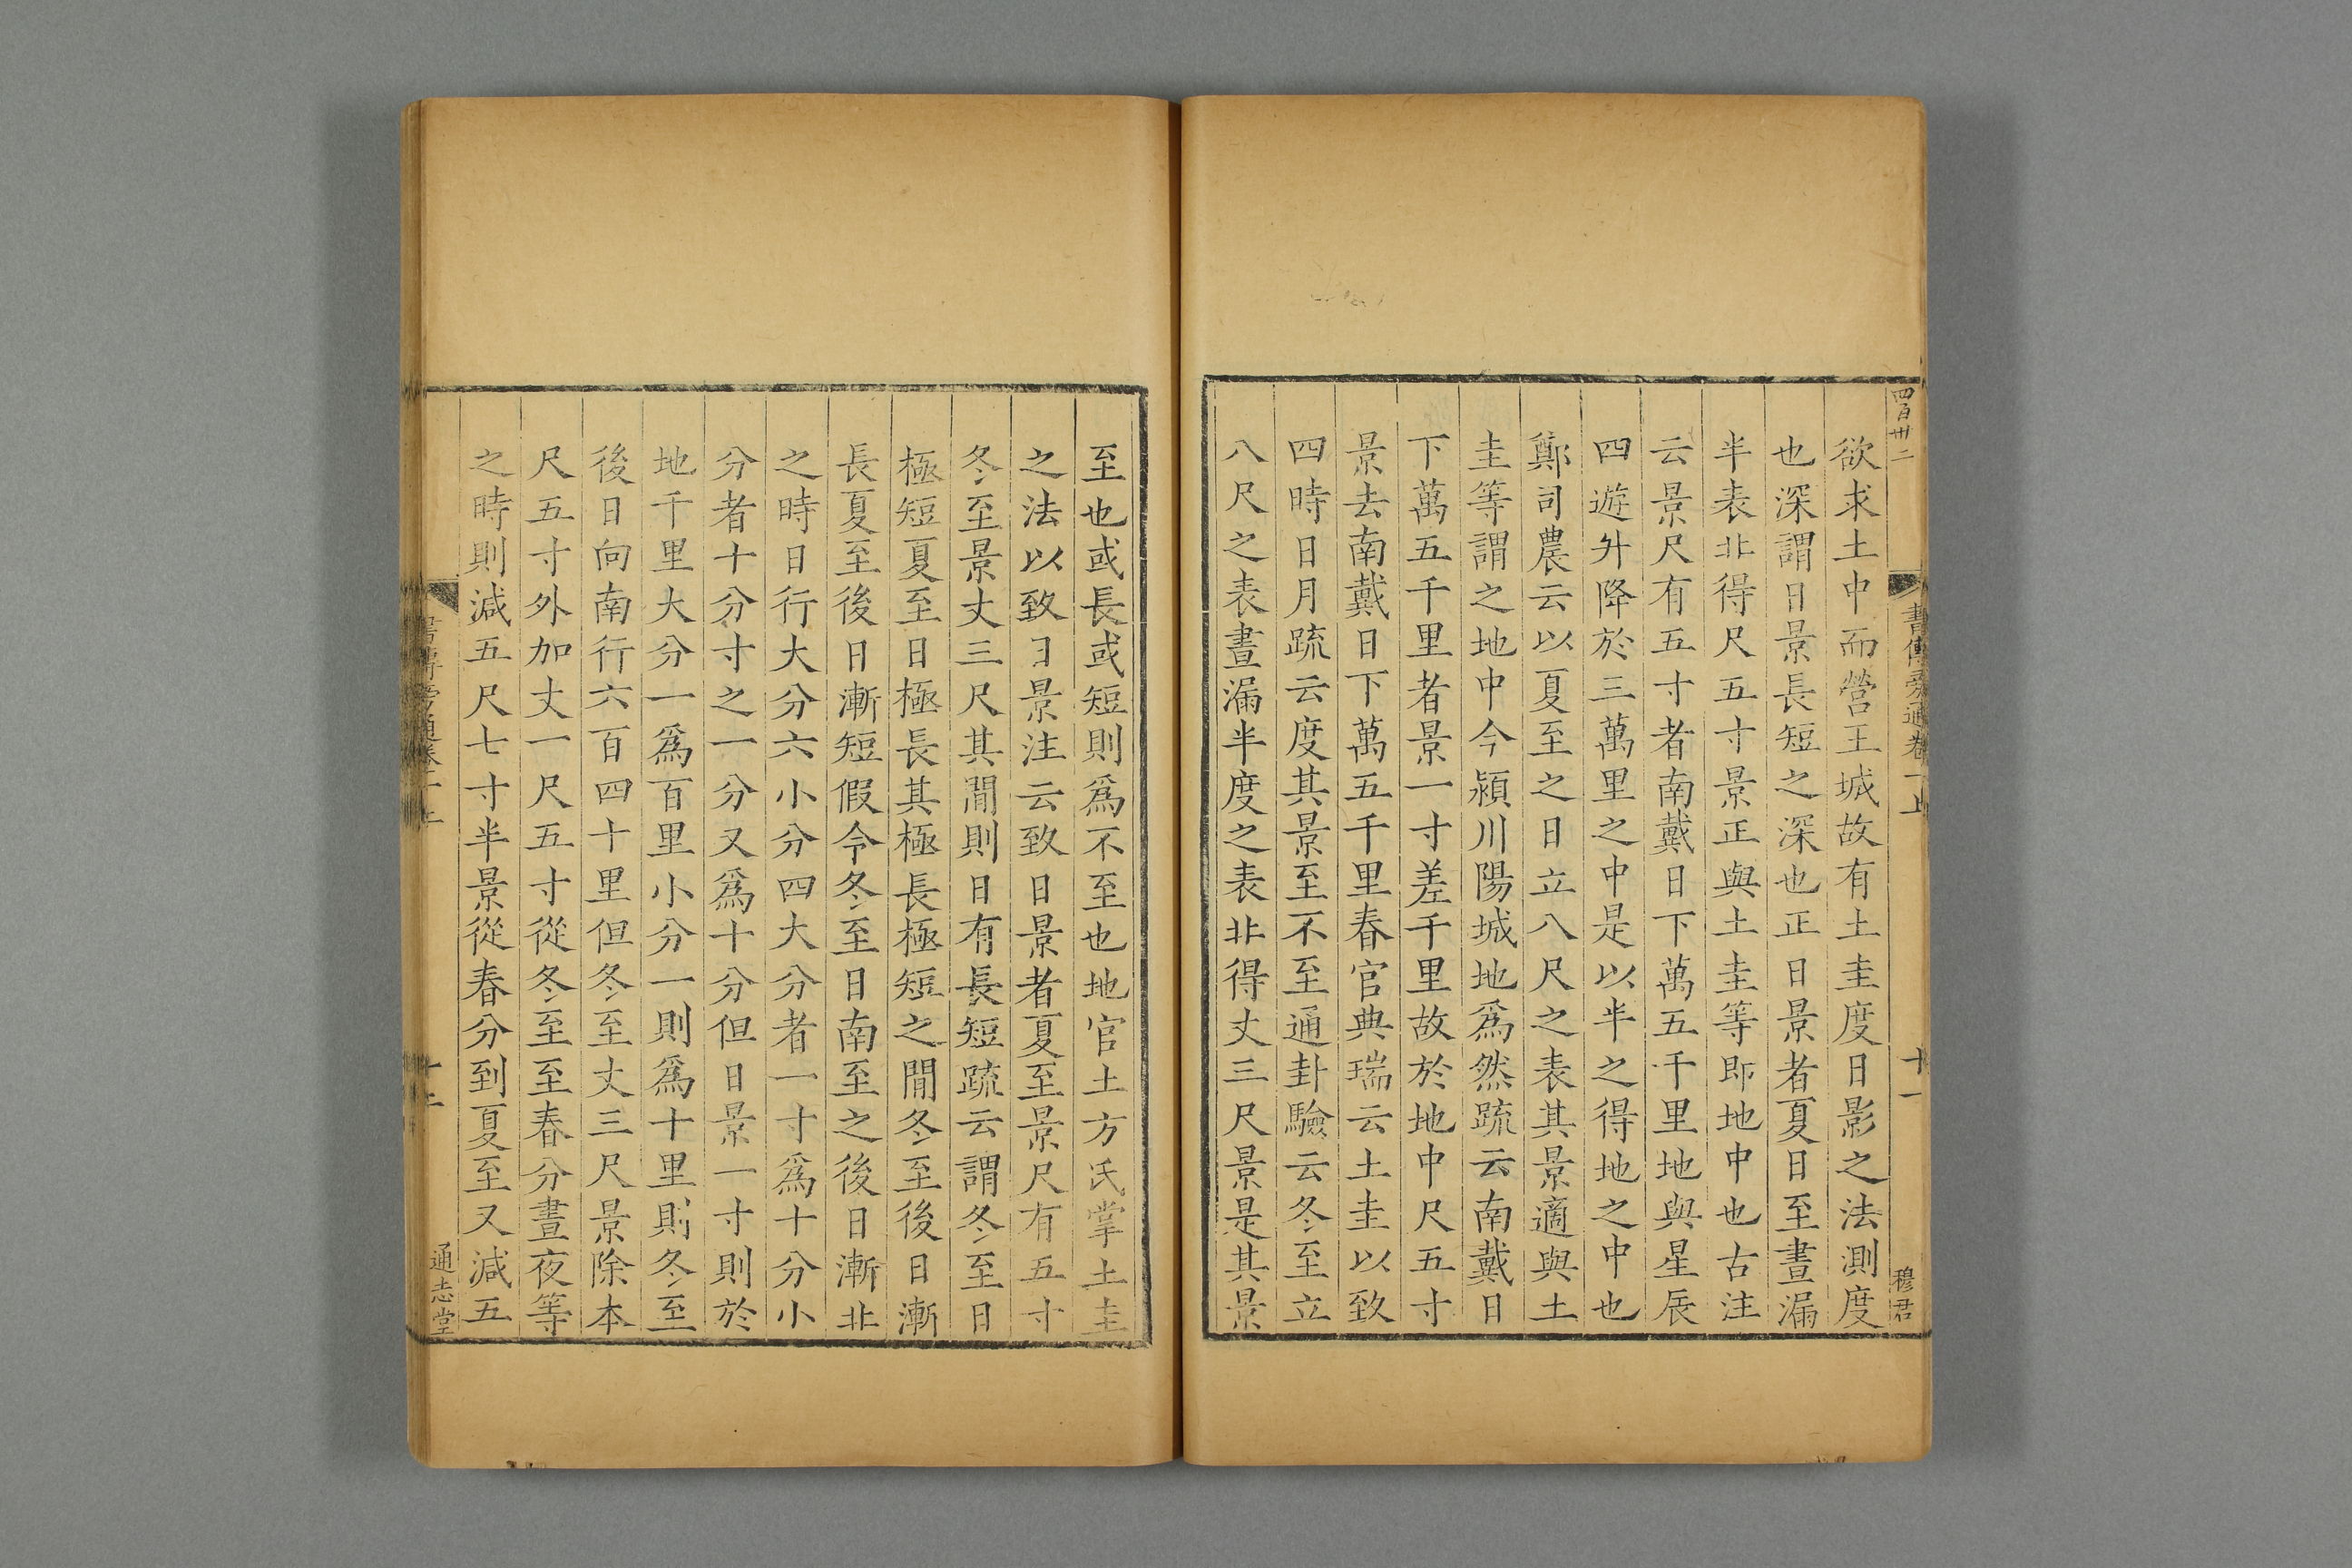 四百卅二
書傳旁通卷一上
十一
穆君
欲求土中而營王城故有土圭度日影之法測度
也深謂日景長短之深也正日景者夏日至晝漏
半表北得尺五寸景正與土圭等即地中也古注
云景尺有五寸者南戴日下萬五千里地與星辰
四遊升降於三萬里之中是以半之得地之中也
鄭司農云以夏至之日立八尺之表其景適與土
圭等謂之地中今潁川陽城地爲然疏云南戴日
下萬五千里者景一寸差千里故於地中尺五寸
景去南戴日下萬五千里春官典瑞云土圭以致
四時日月疏云度其景至不至通卦驗云冬至立
八尺之表晝漏半度之表北得丈三尺景是其景
至也或長或短則爲不至也地官土方氏掌土圭
之法以致日景注云致日景者夏至景尺有五寸
冬至景丈三尺其閒則日有長短疏云謂冬至日
極短夏至日極長其極長極短之閒冬至後日漸
長夏至後日漸短假令冬至日南至之後日漸北
之時日行大分六小分四大分者一寸爲十分小
分者十分寸之一分又爲十分但日景一寸則於
地千里大分一爲百里小分一則爲十里則冬至
後日向南行六百四十里但冬至丈三尺景除本
尺五寸外加丈一尺五寸從冬至至春分晝夜等
之時則減五尺七寸半景從春分到夏至又減五
通志堂